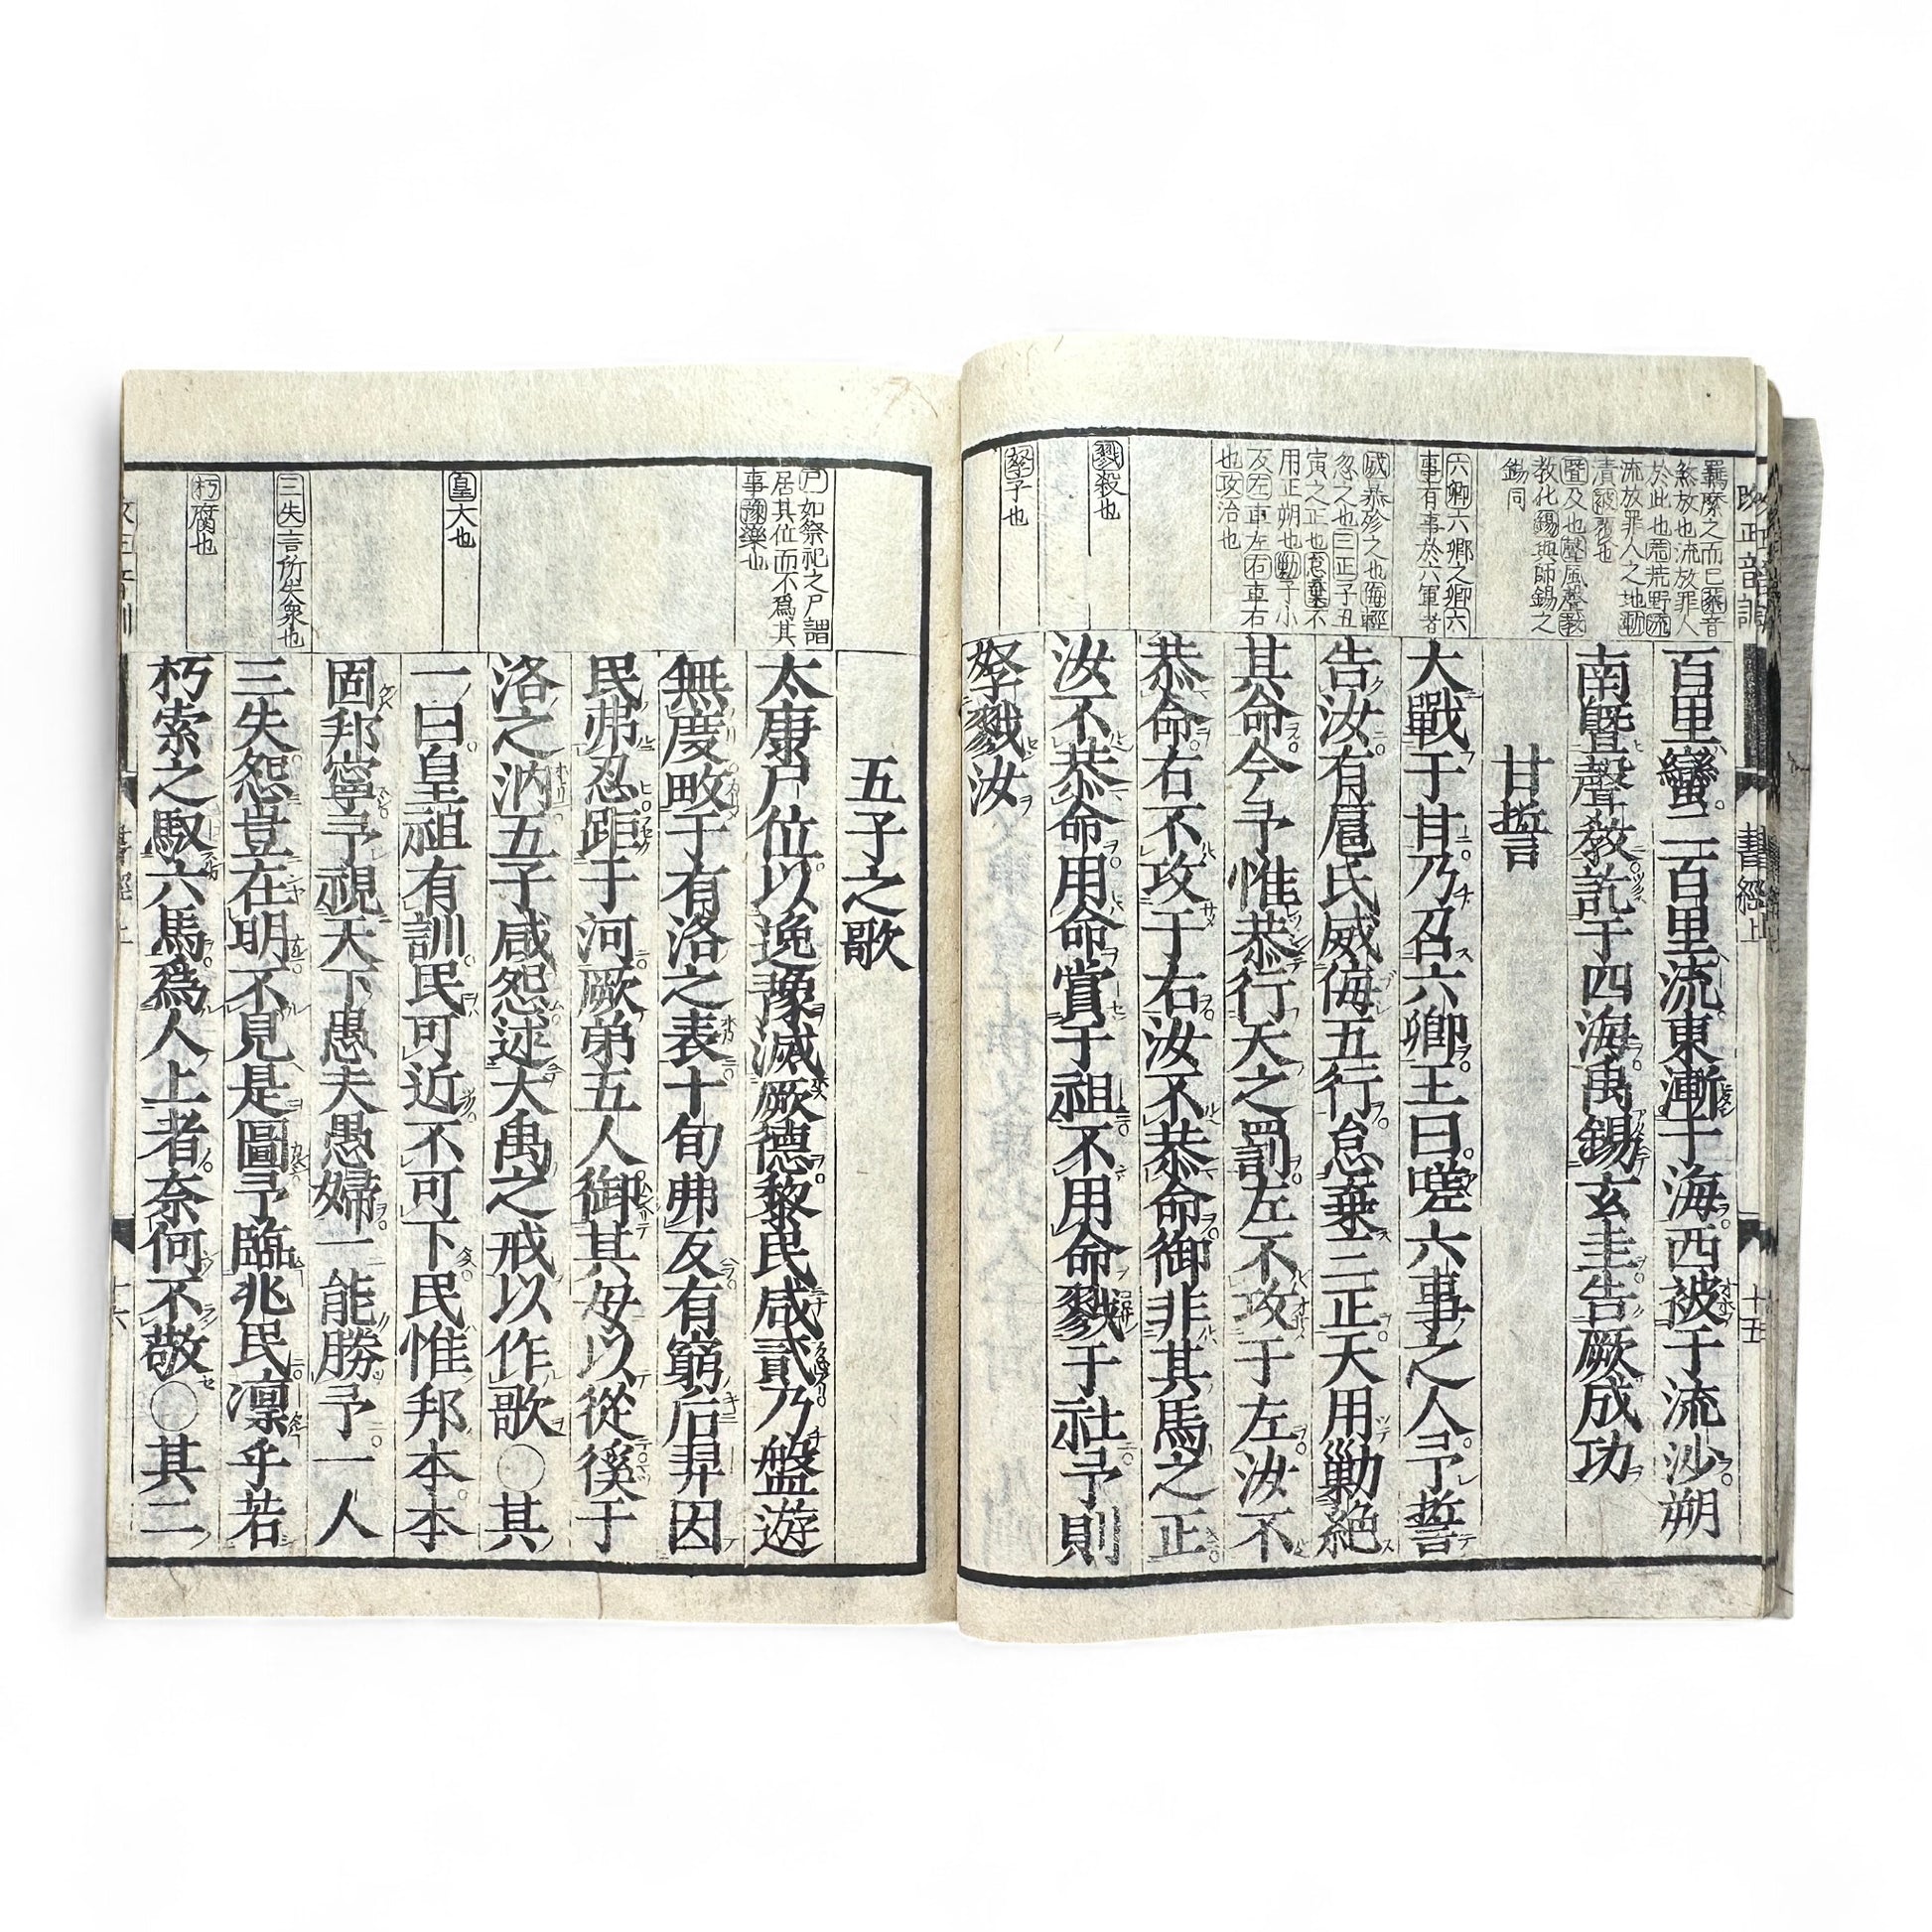 改正音訓
書經上
十五
羈縻之而已蔡音
煞放也流放罪人
於此也荒荒野流
流放罪人之地漸
漬被覆也
曁及也聲風聲教
教化錫與師錫之
錫同
六卿六鄉之卿六
事有事於六軍者
威暴殄之也侮輕
忽之也三正子丑
寅之正也怠棄不
用正朔也勦子小
反左車左右車右
也攻治也
戮殺也
孥子也
百里蠻二百里流東漸于海西被于流沙朔
南曁聲教訖于四海禹錫玄圭告厥成功
甘誓
大戰于甘乃召六卿王曰嗟六事之人予誓
告汝有扈氏威侮五行怠棄三正天用勦絶
其命今予惟恭行天之罰左不攻于左汝不
恭命右不攻于右汝不恭命御非其馬之正
汝不恭命用命賞于祖不用命戮于社予則
孥戮汝
尸如祭祀之尸謂
居其位而不爲其
事豫樂也
皇大也
三失言所失衆也
朽腐也
五子之歌
太康尸位以逸豫滅厥德黎民咸貳乃盤遊
無度畋于有洛之表十旬弗反有窮后羿因
民弗忍距于河厥弟五人御其母以從徯于
洛之汭五子咸怨述大禹之戒以作歌〇其
一曰皇祖有訓民可近不可下民惟邦本本
固邦寧予視天下愚夫愚婦一能勝予一人
三失怨豈在明不見是圖予臨兆民凛乎若
朽索之馭六馬爲人上者奈何不敬〇其二
十六